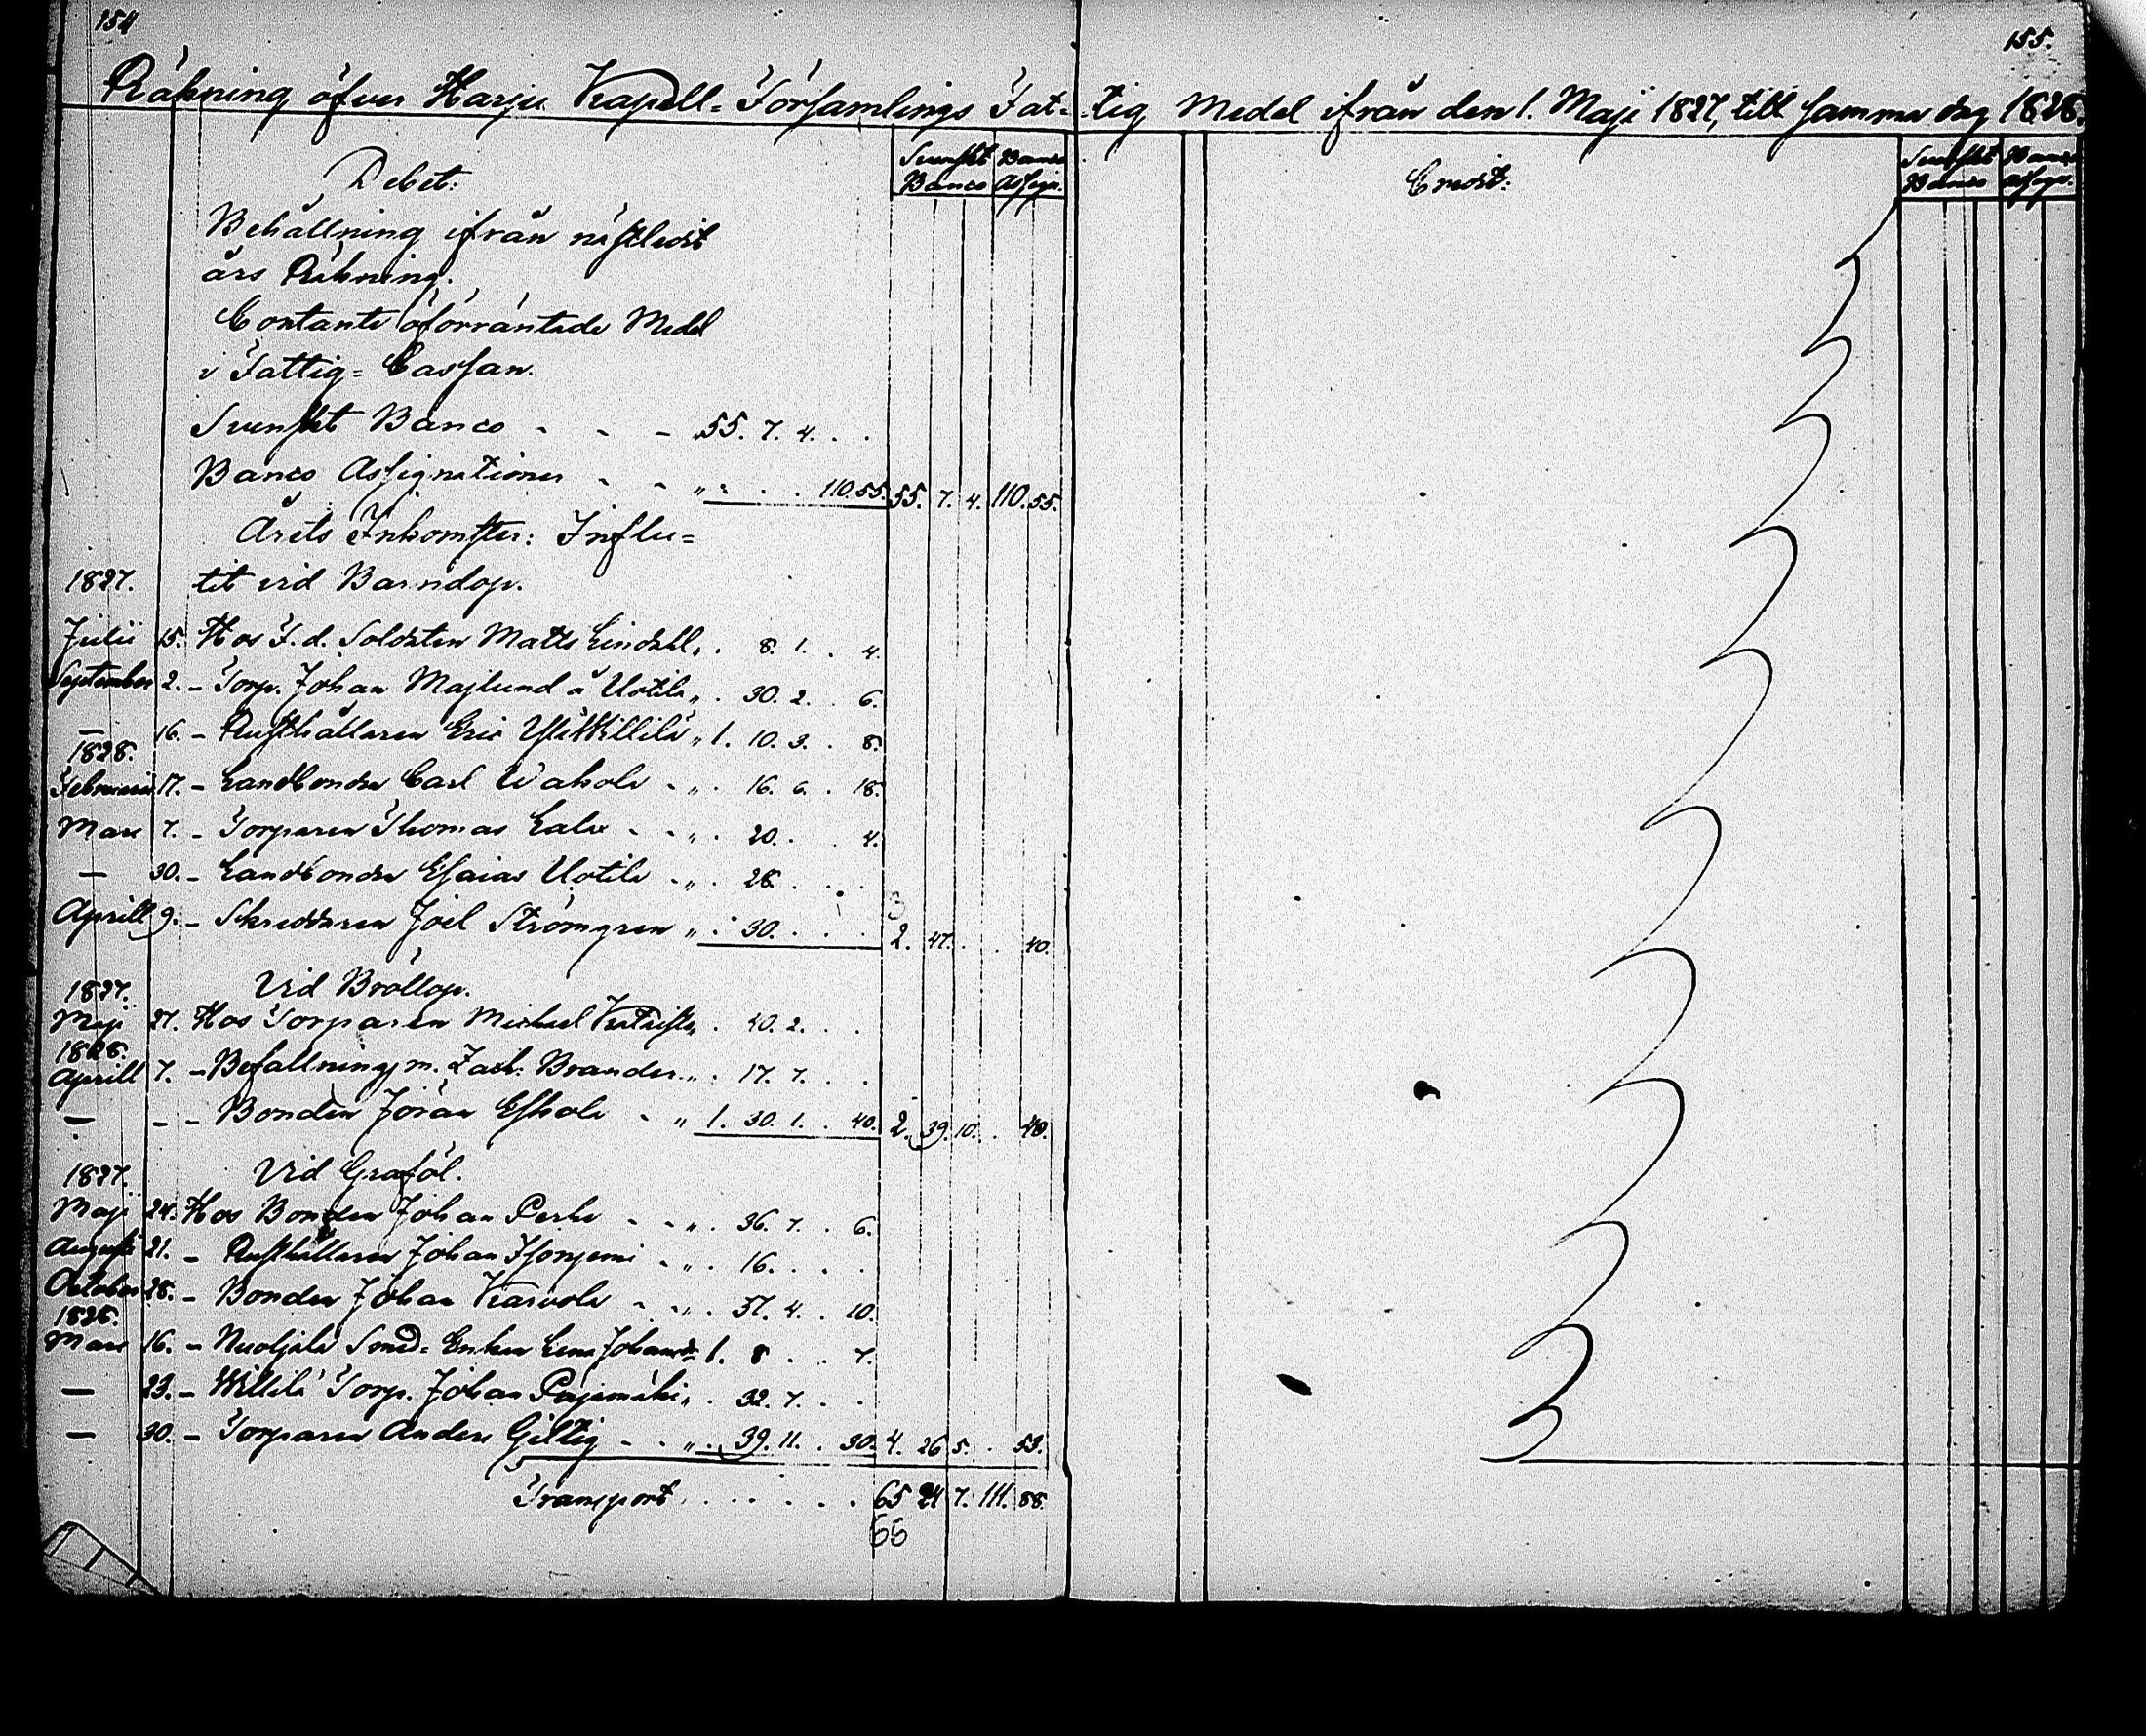 154
155.
Räkning öfver Harju Kapell-Församlings Fat-tig Medel ifrån den 1. Maji 1827, till samma dag 1828.
Debet: Svenskt Banco Banco Assign.
Credit: Svenskt Banco Banco Assign.
Behållning ifrån nästledit
års Räkning.
Contante oförräntade Medel
i Fattig-Cassan.
Svenskt Banco - - - „ 55. 7. 4. . .
Banco Assignationer - - „ . . . 110. 55. 55. 7. 4. 110. 55.
Årets Inkomster: Influ=
1827. tit vid Barndop.
Julii 15. Hos F. d. Soldaten Matts Lindahl „ . 8. 1. . 4.
September 2. - Torp. Johan Majlund å Uotila „ . 30. 2. . 6.
— 16. - Rusthållaren Eric YliWillilä „ 1. 10. 3. . 8.
1828.
Februarii 17. - Landbonden Carl Uahola - „ . 16. 6. . 18.
Mars 7. - Torparen Thomas Lala - - „ . 20. . . 4.
— 30. - Landbonden Esaias Uotila - „ . 28. . . .
3
Aprill 9. - Skreddaren Joel Strömgren „ . 30. . . . 2. 47. . . 40.
1827. Vid Bröllop.
Maji 27. Hos Torparen Michael „ . 40. 2. . .
1828.
Aprill 7. - Befallningsm. Zach: Brander „ . 17. 7. . .
— - - Bonden Jöran Eskola - „ 1. 30. 1. . 40. 2. 39. 10. . 40.
1827. Vid Graföl.
Maji 24. Hos Bonden Johan Perho - - „ . 36. 7. . 6.
Augusti 21. - Rusthållaren Johan Isoniemi - „ . 16. . . .
October 28. - Bonden Johan Karvola - - „ . 37. 4. . 10.
1828.
Mars 16. - Nuoljala Smed-Enkan Lena Johansdr 1. 8 . . 7.
— 23. - Willilä Torp. Johan Pajamäki „ . 32. 7. . .
— 30. - Torparen Anders Giltig - - „ . 39. 11. . 30. 4. 26 5. . 53.
Transport . . . . . . 65 24 7. 111. 88.
66